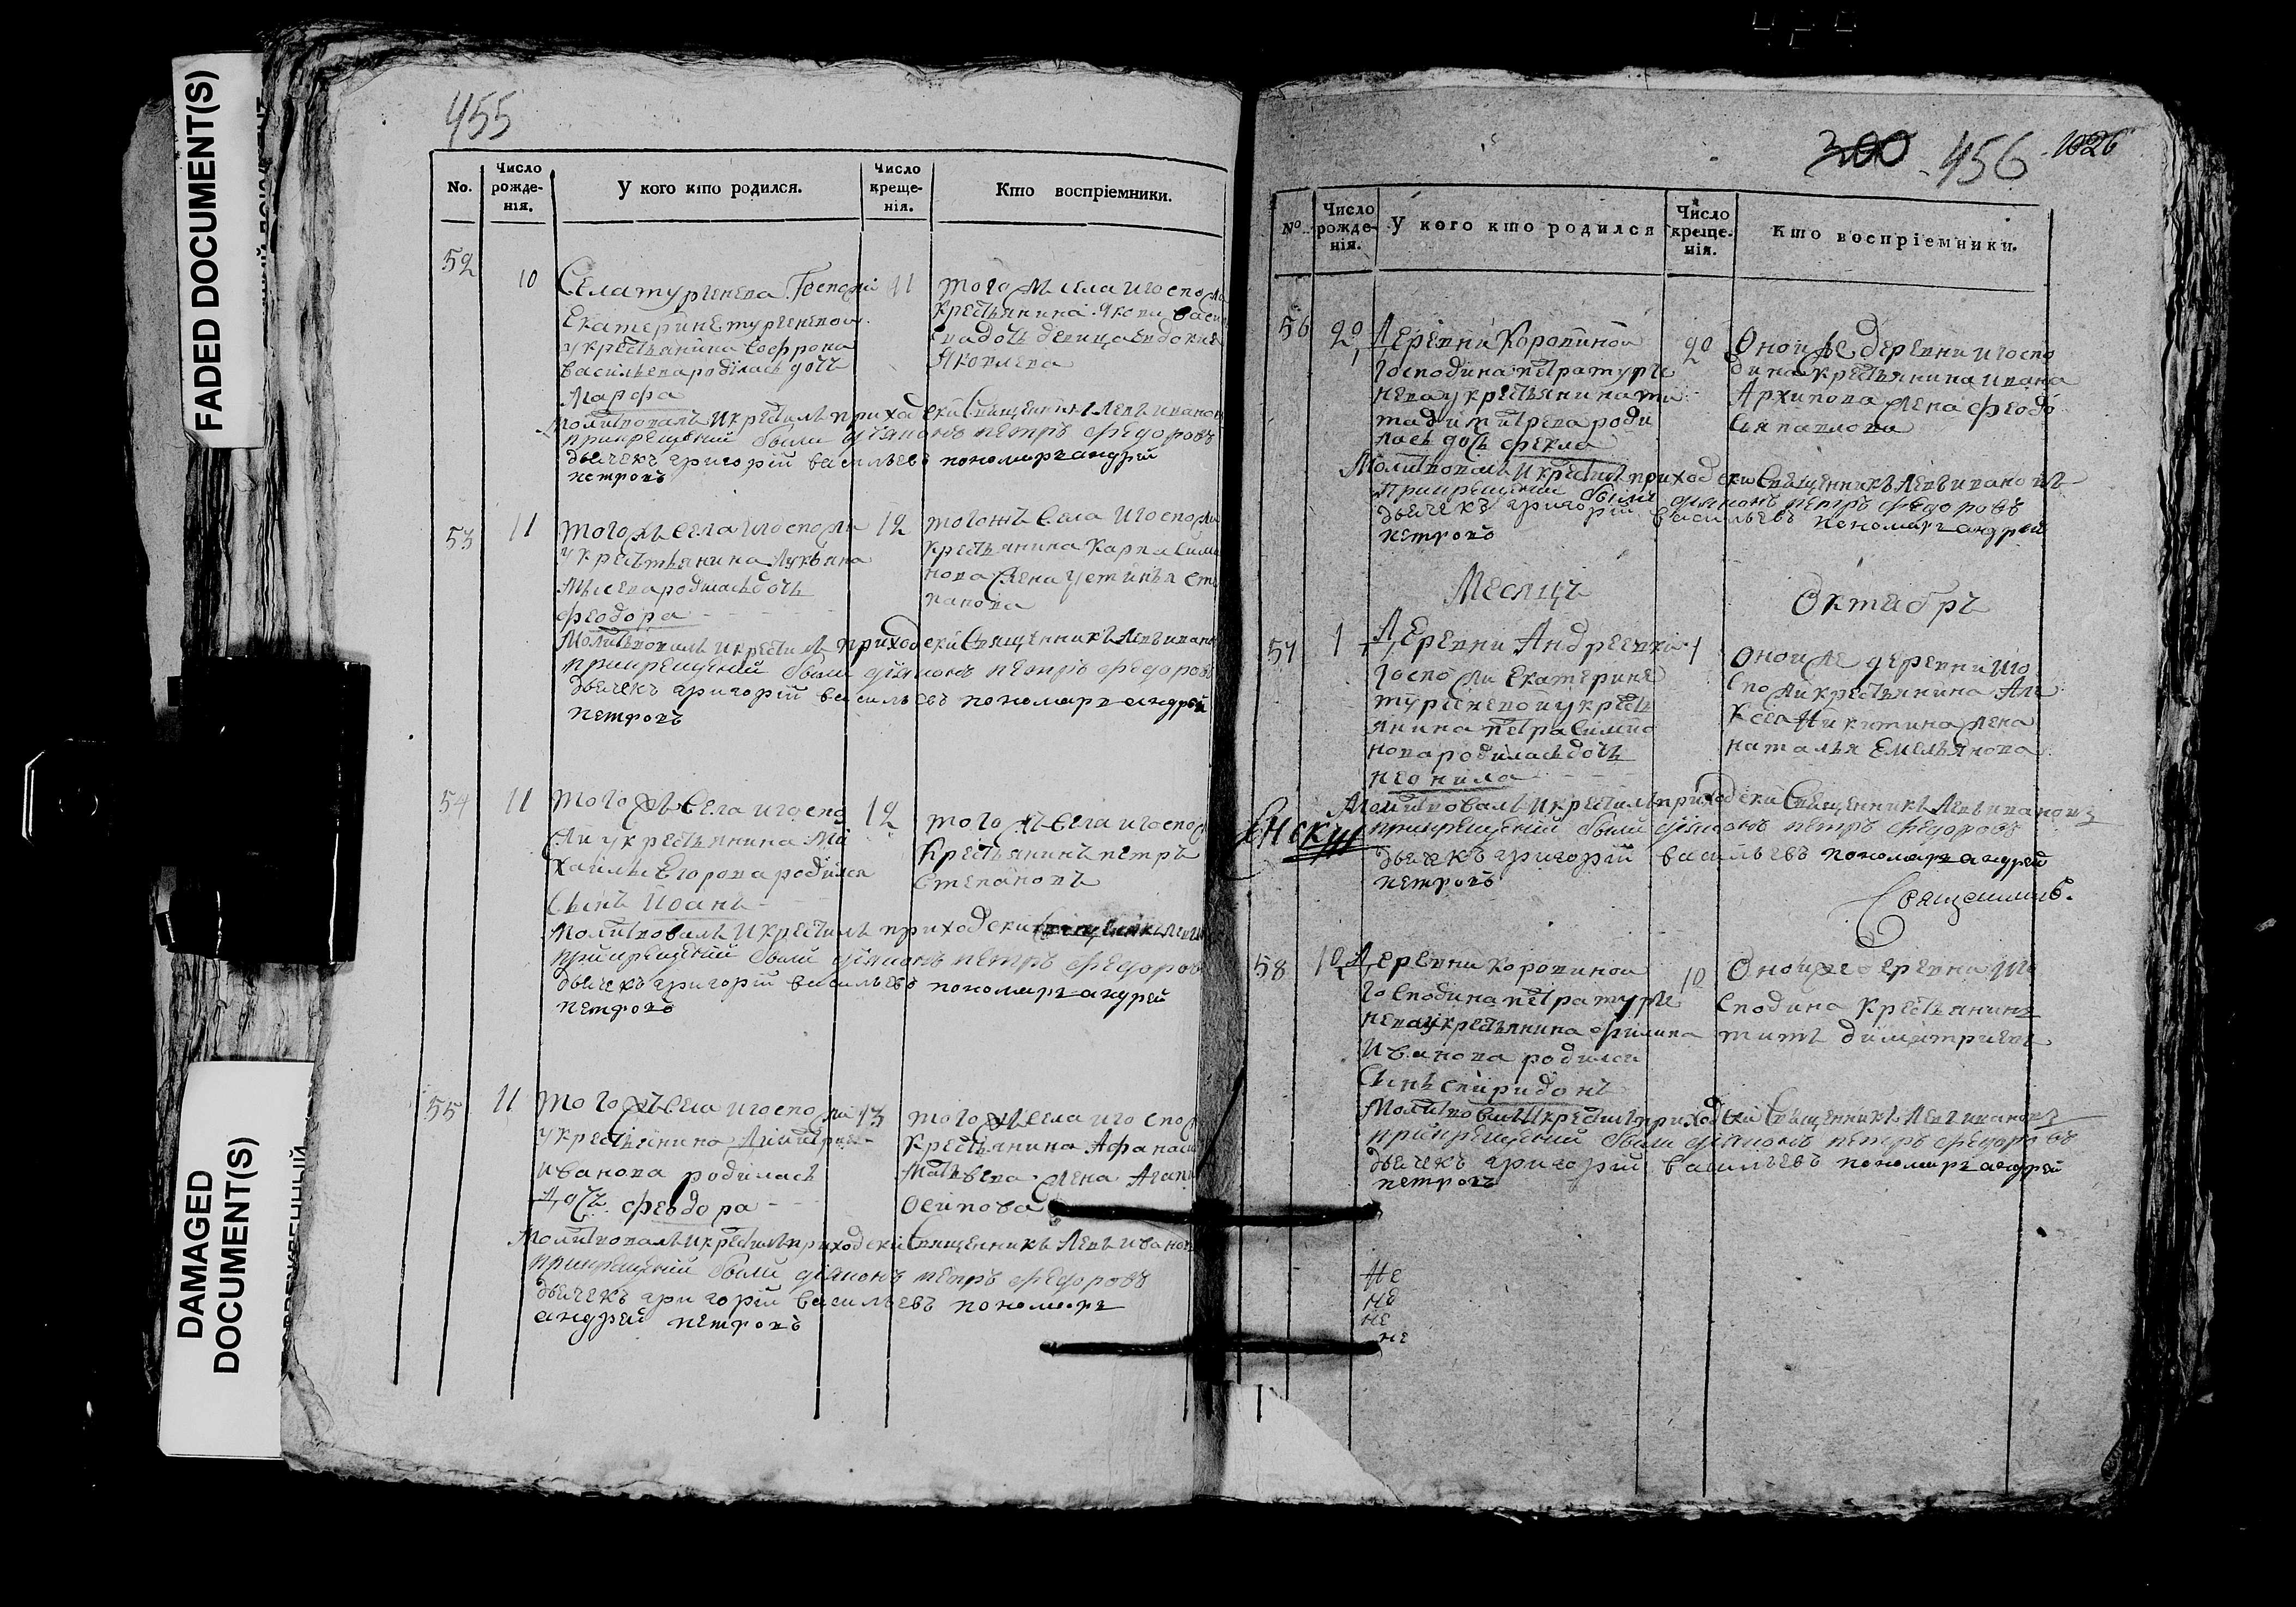 FADED DOCUMENT(S)
DAMAGED
DOCUMENT(S)
455
No.
Число рожде- нія.
У кого кто родился.
Число креще- нія.
Кто воспріемники.
52
10
Села тургенева Госпожи
Екатерине тургеневой
у крестьянина Софрона
васильева родилась дочь
Марфа
11
того жъ села и госпожи
крестьянина Якова васи
дочь девица евдокия
Яковлева
Молитвовалъ и крестилъ приходски Священникъ Левъ иванов
при крещении были диаконъ петръ федоровъ
дьячекъ григорій васильевъ пономарь андрей
петровъ
53
11
того жъ села и госпожи
у крестьянина Лукьяна
родилась дочь
феодора
12
того жъ села и госпожи
крестьянина Карпа Симо
нова жена Устинья сте
панова
Молитвовалъ и крестилъ приходски Священникъ Левъ ивано
при крещении были диаконъ петръ федоровъ
дьячекъ григорій васильевъ пономарь андрей
петровъ
54
11
того жъ села и госпо
жи у крестьянина Ми
хаилы Егорова родился
сынъ Иоанъ
12
того жъ села и госпож
крестьянинъ петръ
Степановъ
Молитвовалъ и крестилъ приходски Священникъ
при крещении были диаконъ петръ федоров
дьячекъ григорій васильевъ пономарь андрей
петровъ
55
11
того жъ села и госпожи
у крестьянина Димитрия
иванова родилась
дочь феодора
13
того жъ села и госпож
крестьянина Афанаси
Матвева жена Агапи
Осипова
Молитвовалъ и крестилъ приходски Священникъ Левъ иванов
при крещении были диаконъ петръ федоровъ
дьячекъ григорій васильевъ пономарь
андрей петровъ
300 456 1026
No
Число рожде- нія.
У кого кто родился
Число креще- нія.
Кто воспріемники.
56
20
Деревни Коровиной
господина петра турге
нева у крестьянина ти
та димитрева роди
лась дочь фекла
20
Оной же деревни и госпо
дина крестьянина ивана
Архипова жена феодо
сья павлова
Молитвовалъ и крестилъ приходски Священникъ Левъ ивановъ
при крещении были диаконъ петръ федоровъ
дьячекъ григорій васильевъ пономарь андрей
петровъ
Месяцъ
Октябръ
57
1
Деревни Андреевки
госпожи Екатерине
тургеневой у кресть
янина петра Симио
нова родилась дочь
неонила
1
Оной же деревни и го
спожи крестьянина Але
ксея Никитина жена
наталья Емельянова
Молитвовалъ и крестилъ приходски Священникъ Левъ ивановъ
при крещении были диаконъ петръ федоровъ
дьячекъ григорій васильевъ пономарь андрей
петровъ
58
10
Деревни Коровиной
господина петра турге
нева у крестьянина филипа
Иванова родился
сынъ спиридонъ
10
Оной же деревни и го
сподина крестьянинъ
титъ димитриевъ
Молитвовалъ и крестилъ приходски Священникъ Левъ ивановъ
при крещении были диаконъ петръ федоровъ
дьячекъ григорій васильевъ пономарь андрей
петровъ
Не
не
не
не